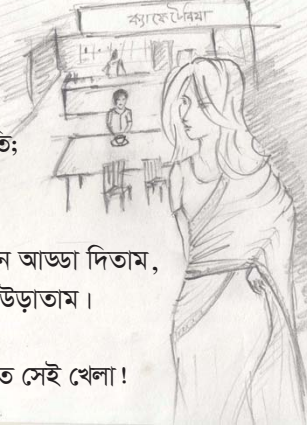 ক্যাফেটেরিয়া
তি;
ন আড্ডা দিতাম,
উড়াতাম।
ত সেই খেলা!